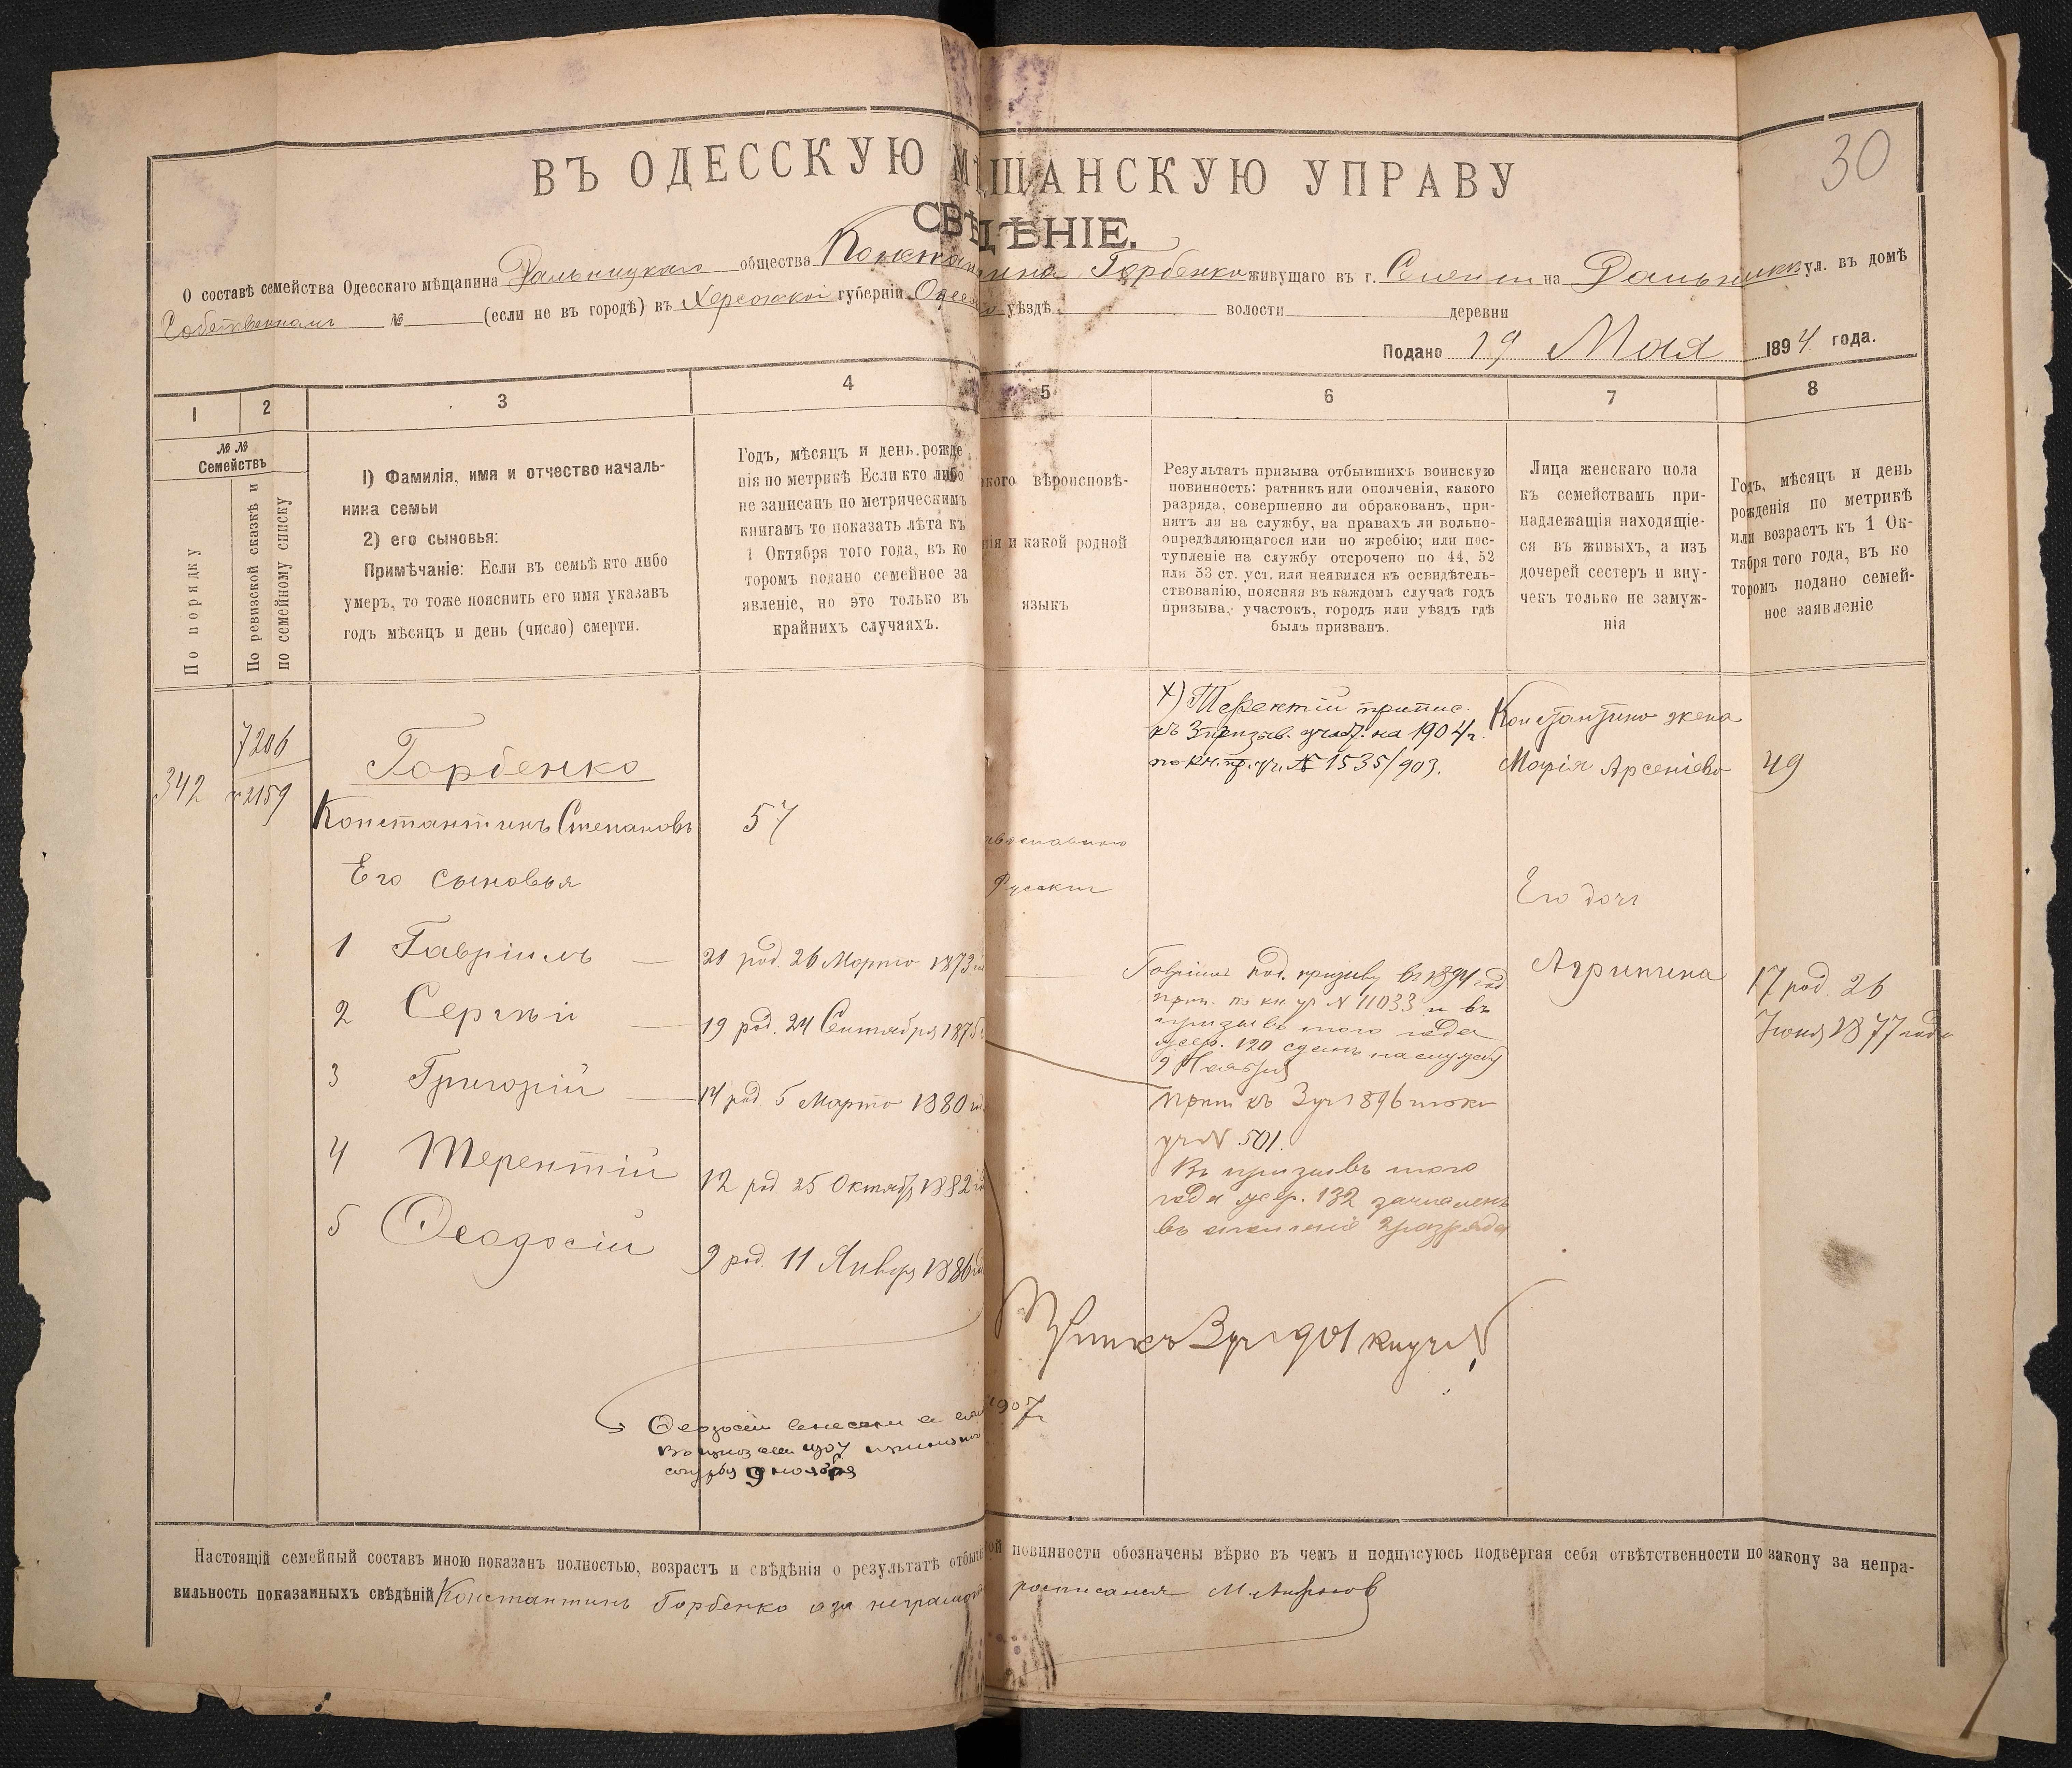 30
ВЪ ОДЕССКУЮ МѢЩАНСКУЮ УПРАВУ
СВѢДѢНІЕ.
О составѣ семейства Одесскаго мѣщанина Дальницкаго общества Константина Горбенко живущаго въ г. на ул. въ домѣ
Собственномъ № (если не въ городѣ) въ Херсонской губерніи уѣздѣ волости деревни
Подано 19 Мая 1894 года.
1 2 3 4 5 6 7 8
№ № Семействъ
По порядку
По ревизской сказкѣ и
по семейному списку
1) Фамилія, имя и отчество началь-
ника семьи
2) его сыновья:
Примѣчаніе: Если въ семьѣ кто либо
умеръ, то тоже пояснить его имя указавъ
годъ мѣсяцъ и день (число) смерти.
Годъ, мѣсяцъ и день рожде
нія по метрикѣ Если кто либо
не записанъ по метрическимъ
книгамъ то показать лѣта къ
1 Октября того года, въ ко
торомъ подано семейное за
явленіе, но это только въ
крайнихъ случаяхъ.
вѣроисповѣ-
и какой родной
языкъ
Результатъ призыва отбывшихъ воинскую
повинность: ратникъ или ополченія, какого
разряда, совершенно ли обракованъ, при-
нятъ ли на службу, на правахъ ли вольно-
опредѣляющагося или по жребію; или пос-
тупленіе на службу отсрочено по 44, 52
или 53 ст. уст. или неявился къ освидѣтель-
ствованію, поясняя въ каждомъ случаѣ годъ
призыва, участокъ, городъ или уѣздъ гдѣ
былъ призванъ.
Лица женскаго пола
къ семействамъ при-
надлежащія находящіе-
ся въ живыхъ, а изъ
дочерей сестеръ и вну-
чекъ только не замуж-
нія
Годъ, мѣсяцъ и день
рожденія по метрикѣ
или возрастъ къ 1 Ок-
тября того года, въ ко
торомъ подано семей-
ное заявленіе
342
7206
2159
Горбенко
Константинъ Степановъ 57
Его сыновья
1 Гавріилъ — 21 род. 26 Марта 1873
2 Сергѣй — 19 род. 24 Сентября 1875
3 Григорій — 14 род. 5 Марта 1880
4 Терентій 12 род. 25 Октяб. 1882
5 Феодосій 9 род. 11 Январ 1886
Русскій
х) Терентій припис.
къ 3 призыв. участ. на 1904 г.
по кн. пр. уч. № 1535/903.
Гавріилъ под. призыву въ 1894 год
прип. по кн. уч N 11033 и въ
призывъ того года
жер. 120 сданъ на службу
9 Ноября
прип къ 3 уч 1896
уч N 501.
Въ призывъ того
года жер. 132 зачисленъ
въ ополченіе 2 разряда
Прип къ 3 уч 901 кн уч N
Константина жена
Марія Арсеніева 49
Его дочь
Агрипина 17 род. 26
Іюня 1877 года
Феодосій
9 ноября
1907 г
Настоящій семейный составъ мною показанъ полностью, возрастъ и свѣдѣнія о результатѣ отбыт ой повинности обозначены вѣрно въ чемъ и подписуюсь подвергая себя отвѣтственности по закону за непра-
вильность показанныхъ свѣдѣній Константинъ Горбенко а за неграмот росписался